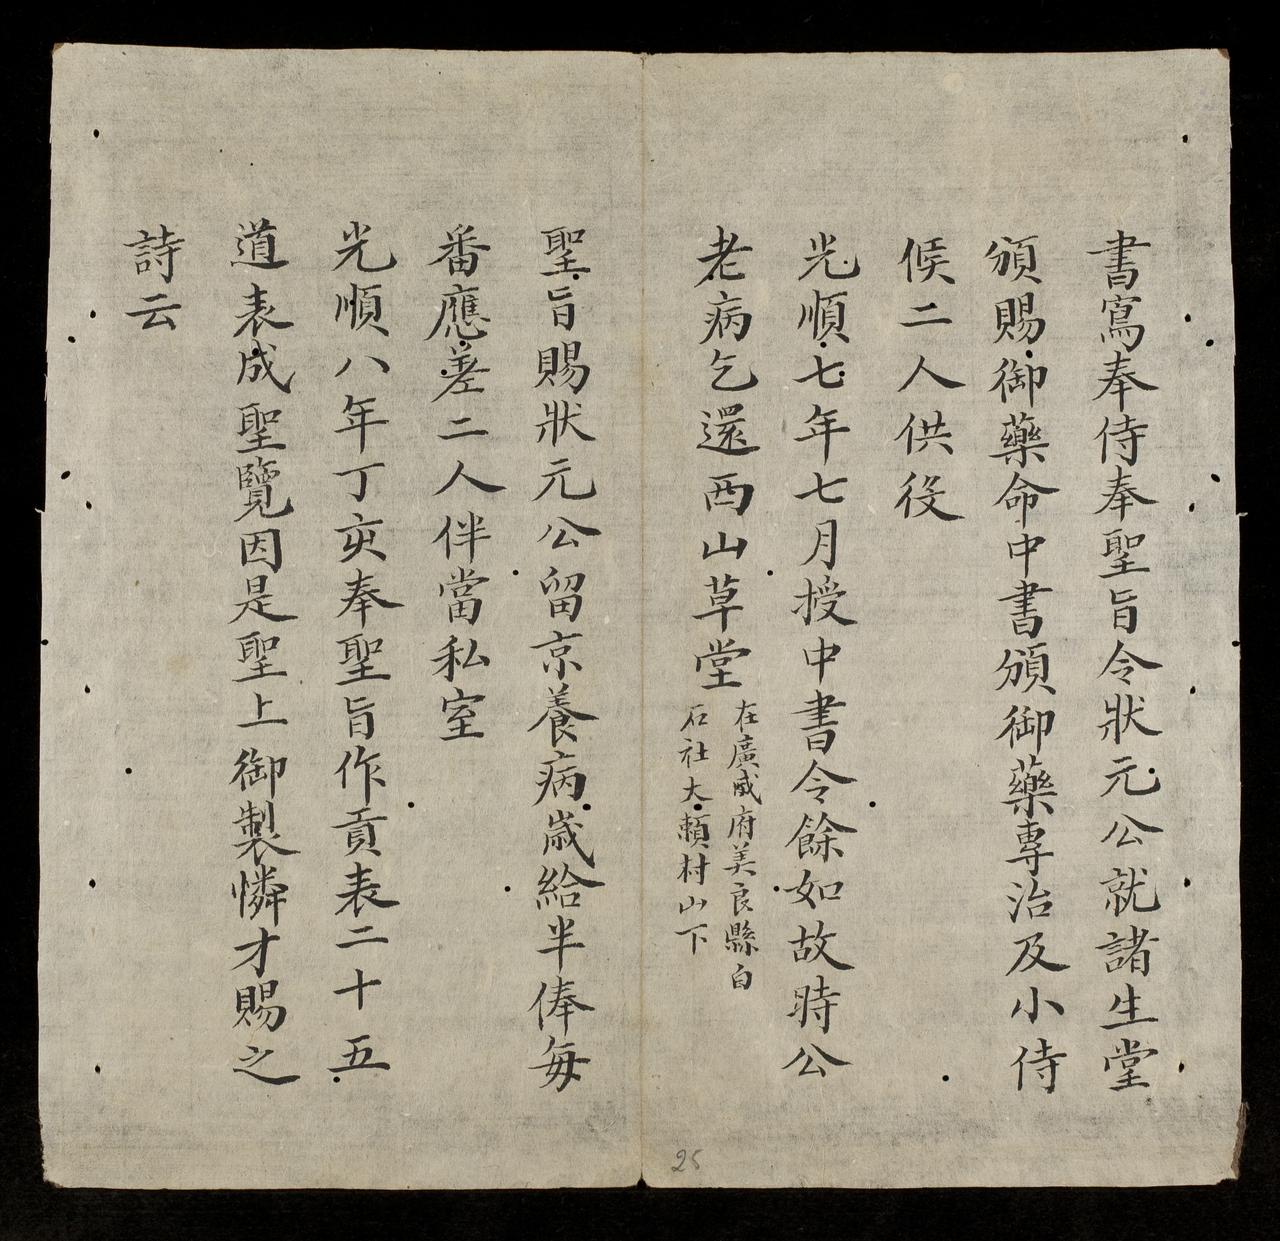 書寫奉侍奉聖旨令狀元公就諸生堂
頒賜御藥命中書頒御藥專治及小侍
候二人供役
光順七年七月授中書令餘如故時公
老病乞還西山草堂
在廣威府美良縣白
石社大賴村山下
聖旨賜狀元公留京養病歲給半俸每
番應差二人伴當私室
光順八年丁亥奉聖旨作貢表二十五
道表成聖覽因是聖上御製憐才賜之
詩云
25